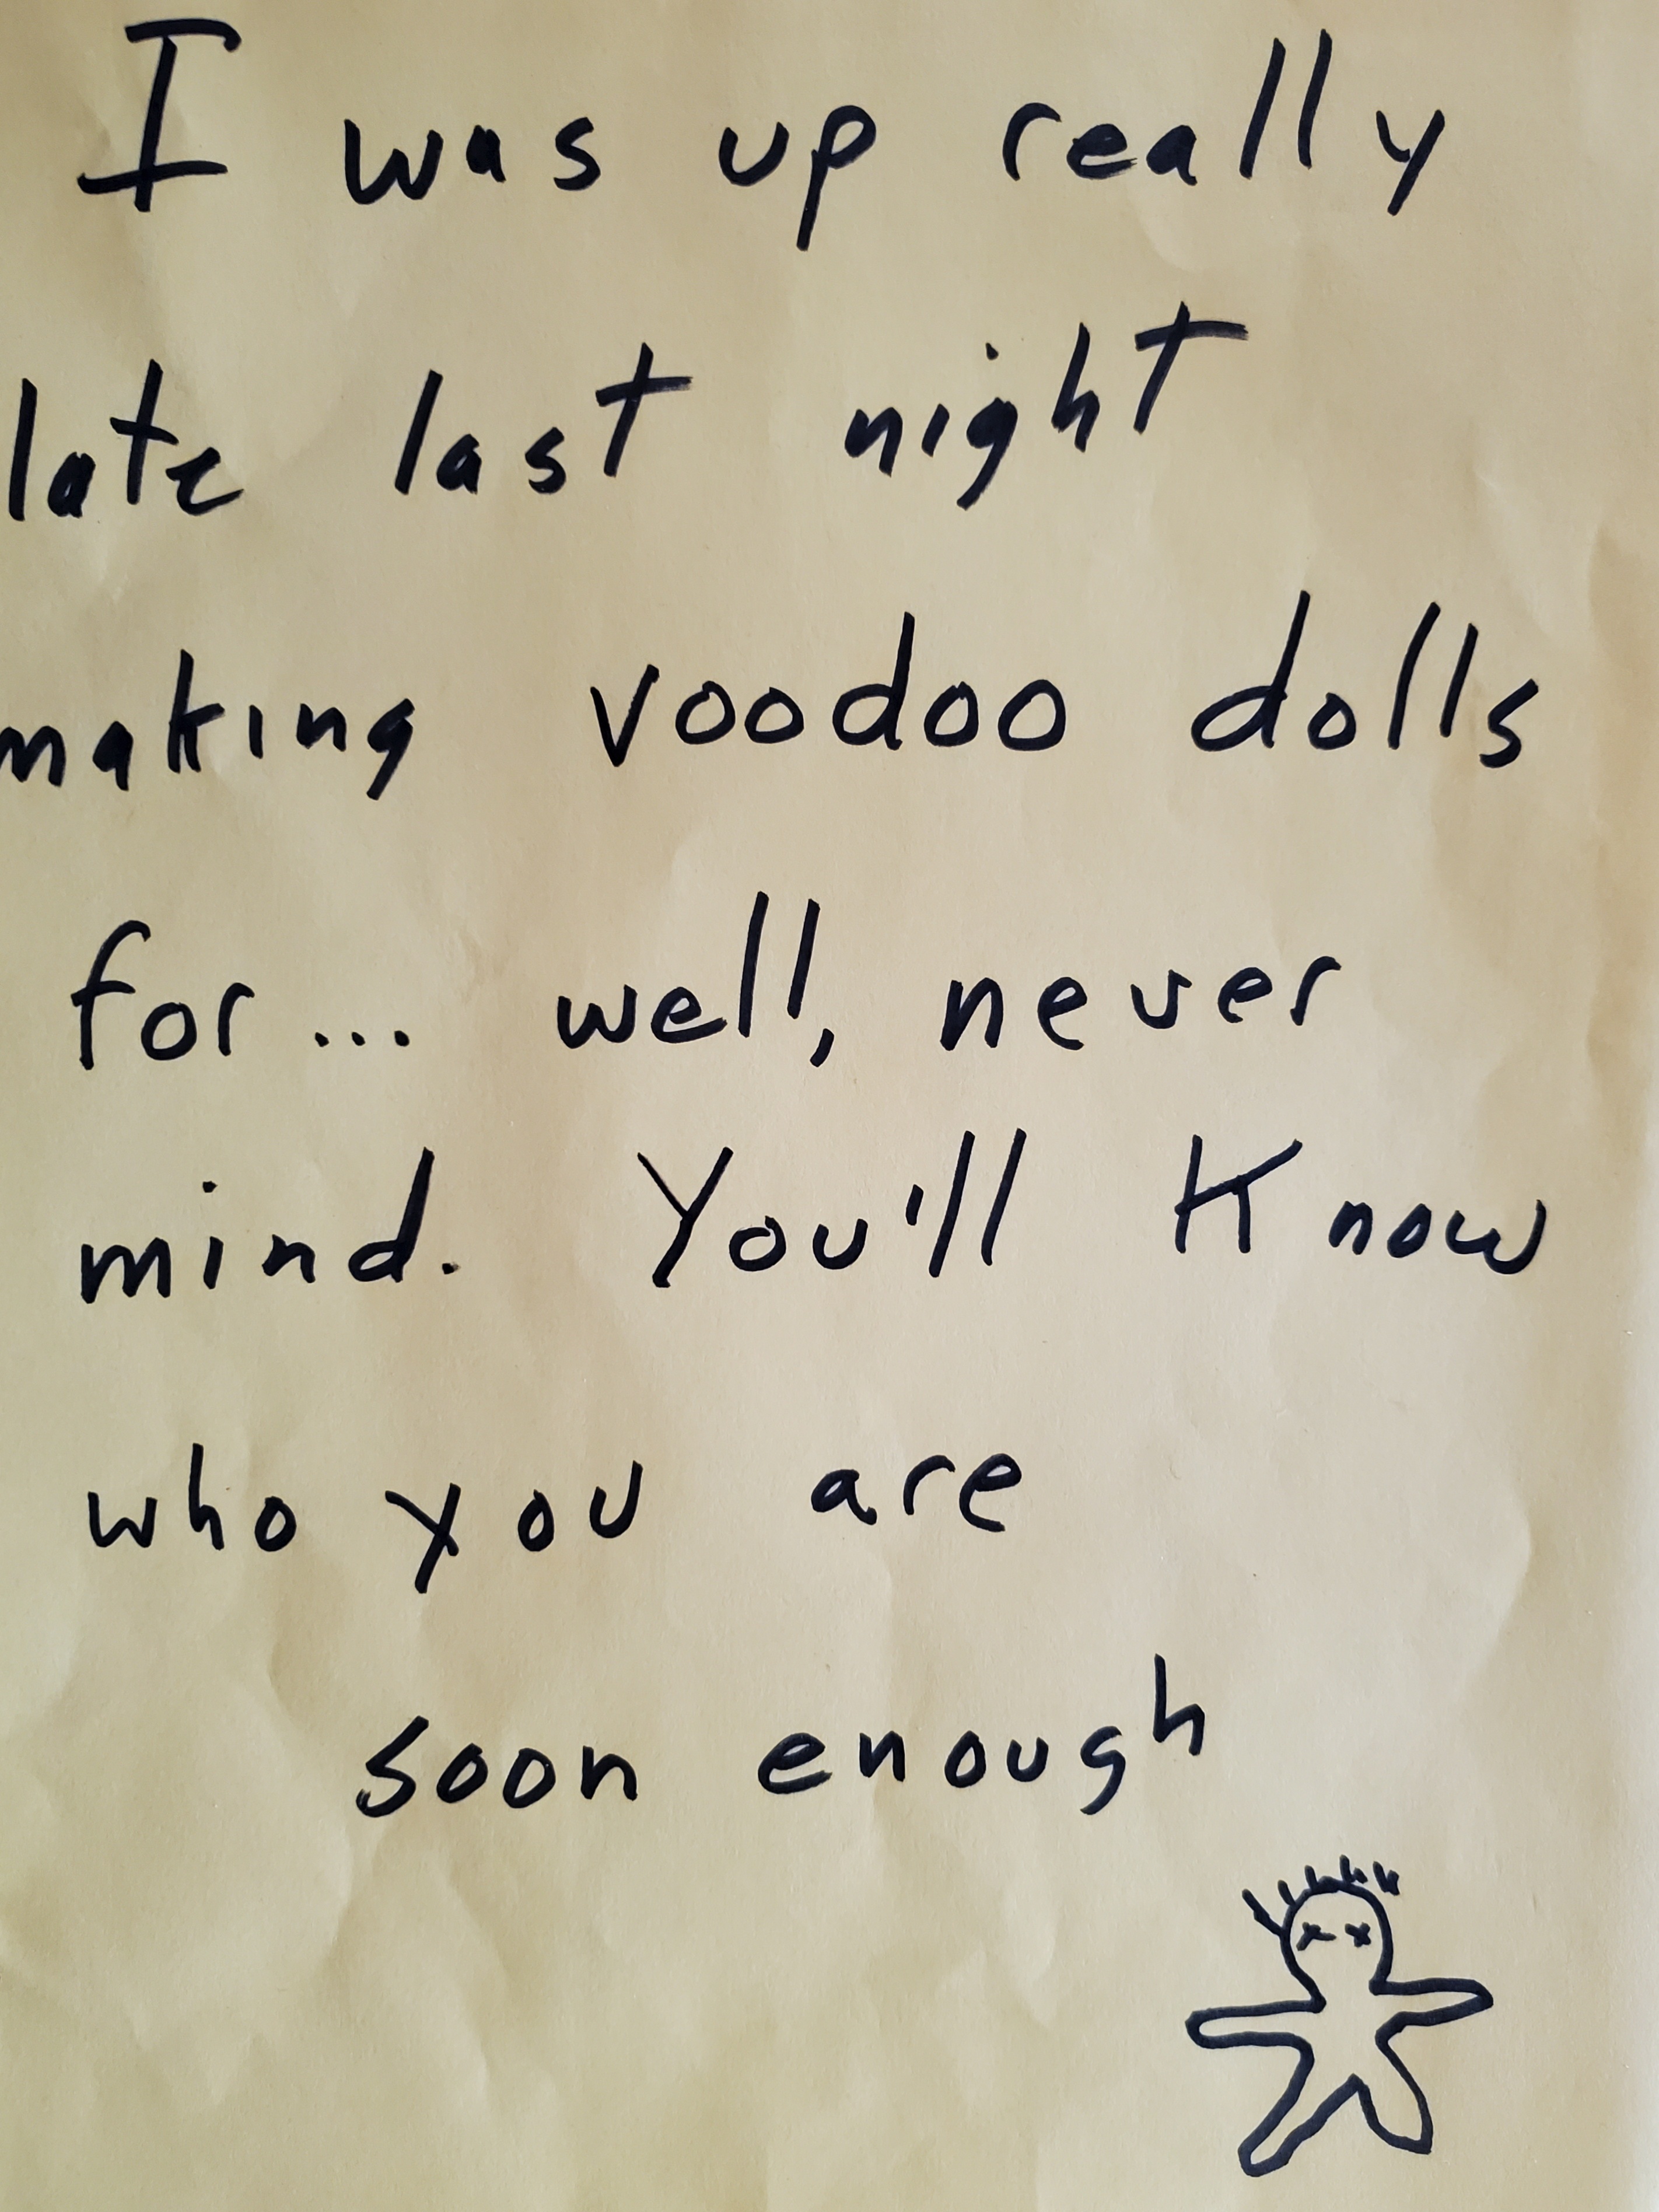 I was up really
late last night
making voodoo dolls
for... well, never
mind. You'll Know
who you are
soon enough